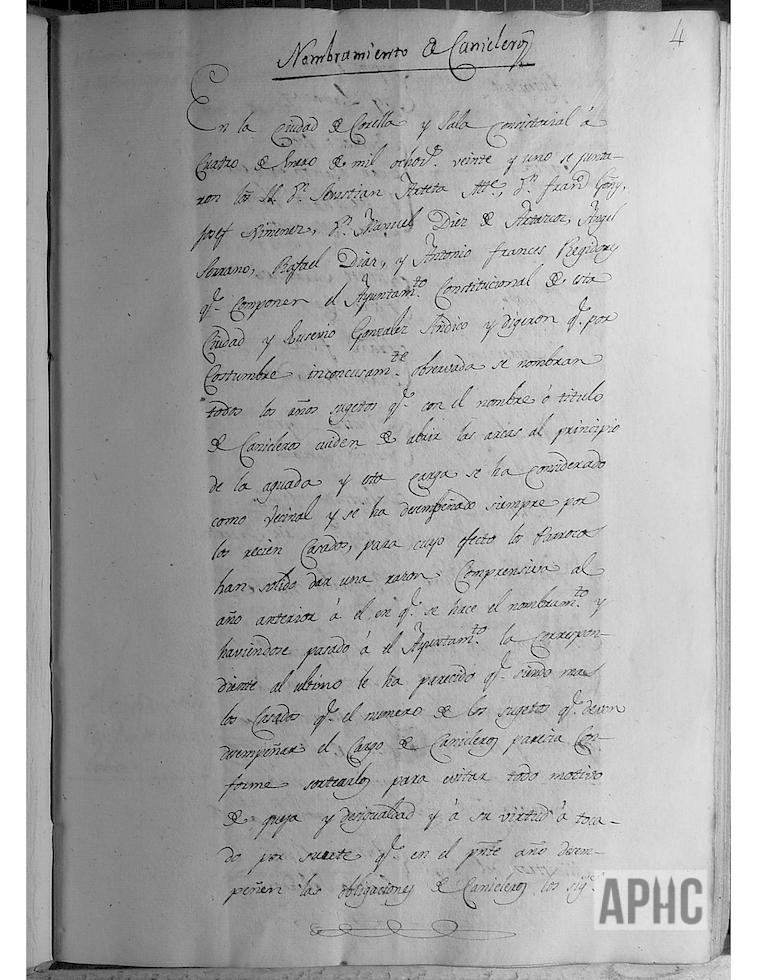 4
Nombramiento de Canicleros
En la Ciudad de Corella y Sala Consistorial á
Cuatro de Enero de mil ochoc.s veinte y uno se junta-
ron los SS. D.n Sevastian Arteta Alc.e, D.n Fran.co Goñy,
Josef Ximenez, D.n Manuel Diez de Arteta, Angel
Serrano, Rafael Diaz, y Antonio Frances Regidores
q.e componen el Ayuntam.to Constitucional de esta
Ciudad y Eusevio Gonzalez Sindico y digeron q.e por
Costumbre inconcusam.te observada se nombran
todos los años sugetos q.e con el nombre ó titulo
de Canicleros cuiden de abrir las arcas al principio
de la aguada y esta carga se ha considerado
como vecinal y se ha desempeñado siempre por
los recien Casados, para cuyo efecto los Parrocos
han solido dar una razon Comprensiva al
año anterior á el en q.e se hace el nombram.to y
haviendose pasado á el Ayuntam.to la Correspon-
diente al ultimo le ha parecido q.e siendo mas
los Casados q.e el numero de los sugetos q.e deven
desempeñar el Cargo de Canicleros parecia Con-
forme sortearlos para evitar todo motivo
de queja y desigualdad y á su virtud á toca-
do por suerte q.e en el pnte año desem-
peñen las obligaciones de Canicleros los sig.s
APHC